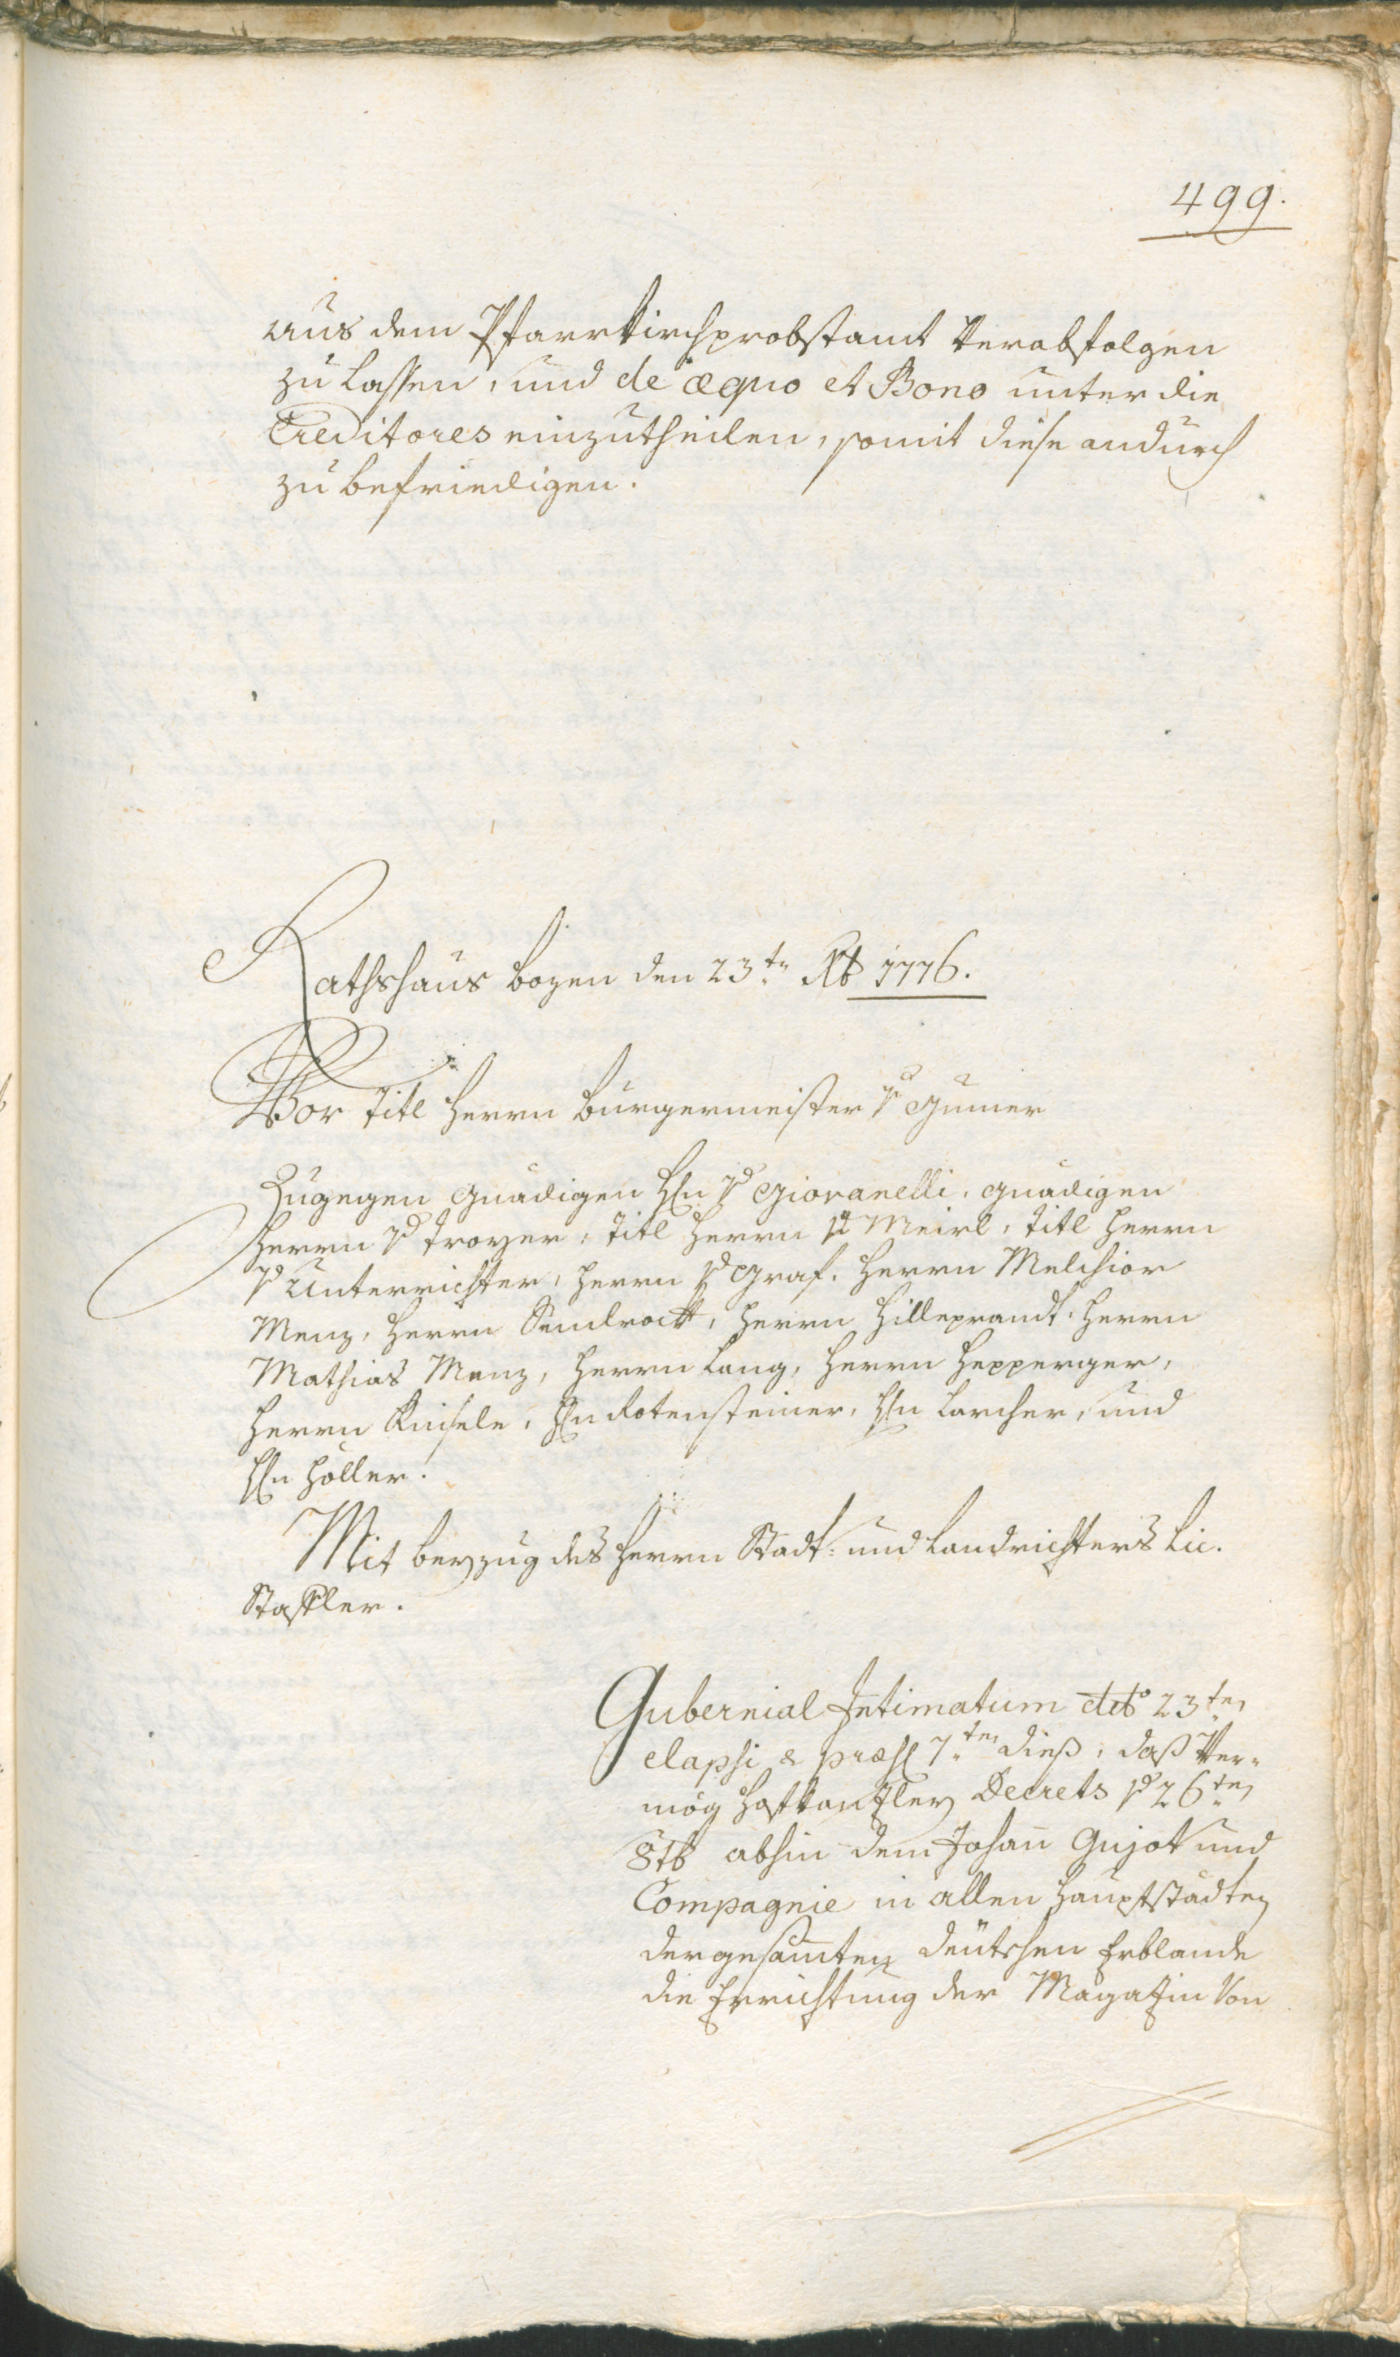 499.
aus dem Pfarrkirchprobstamt Verabfolgen
zu lassen, und de æquo et Bono unter die
Creditores einzutheilen, somit diese andurch
zu befriedigen.
Rathshaus bozen den 23ten Xb 1776.
Vor Titl Herrn Burgermeister v Gumer
Zugegen gnädigen Hln v Giovanelli, gnädigen
Herrn v Troyer, Titl Herrn v Meirl, Titl Herrn
v Unterrichter, Herrn v Graf, Herrn Melchior
Menz, Herrn Hilleprandt, Herrn
Mathias Menz, Herrn Lang, Herrn Hepperger,
Herrn Kinsele, Hln Rotensteiner, Hln Larcher, und
Hln Höller.
Mit beyzug des Herrn Stadt- und Landrichters Lic.
Staffler.
Gubernial Intimatum ddto 23ten
elapsi & præs 7ten dieß, daß Ver=
mög Hofkanzley Decrets v 26ten
8tb abhin dem Johann Gujot und
Compagnie in allen Hauptstädten
der gesamten deutschen Erblande
die Errichtung der Magazin Von